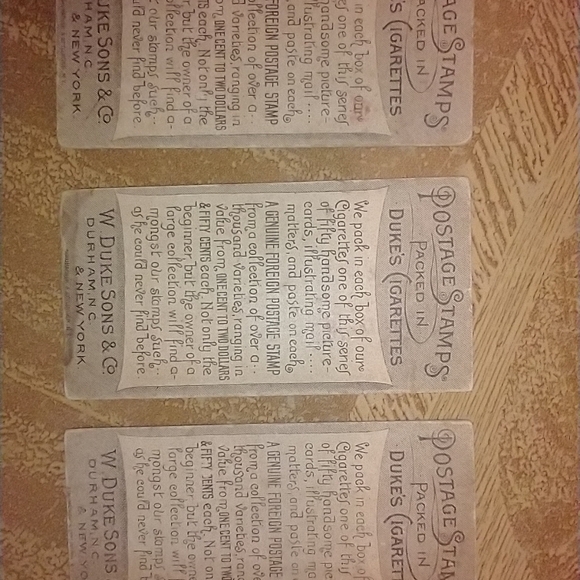 AGE STAMPS
PACKED IN
KE'S CIGARETTES
in each box of our
one of this series
andsome picture-
llustrating mail ....
, and paste on each
FOREIGN POSTAGE STAMP
ollection of over a ..
d varieties, ranging in
ONE CENT TO TWO DOLLARS
TS each. Not only the
r, but the owner of a
ollection will find a-
our stamps such
uld never find before.
UKE SONS & CO.
M, N.C.
& NEW YORK
POSTAGE STAMPS
PACKED IN
DUKE'S CIGARETTES
We pack in each box of our
Cigarettes one of this series
of fifty handsome picture-
cards, illustrating mail ....
matters, and paste on each
A GENUINE FOREIGN POSTAGE STAMP
from a collection of over a ..
thousand varieties, ranging in
value from ONE CENT TO TWO DOLLARS
& FIFTY CENTS each. Not only the
beginner, but the owner of a
large collection will find a-
mongst our stamps such
as he could never find before.
W. DUKE SONS & CO.
DURHAM, N.C.
& NEW YORK
POSTAGE STAM
PACKED IN
DUKE'S CIGARET
We pack in each box of
Cigarettes one of this
of fifty handsome pict
cards, illustrating ma
matters, and paste on
A GENUINE FOREIGN POSTAGE
from a collection of over
thousand varieties, rang
value from ONE CENT TO TWO
& FIFTY CENTS each. Not on
beginner, but the owne
large collection wil
mongst our stamps
as he could never find
W. DUKE SONS
DURHAM, N.C.
& NEW YO